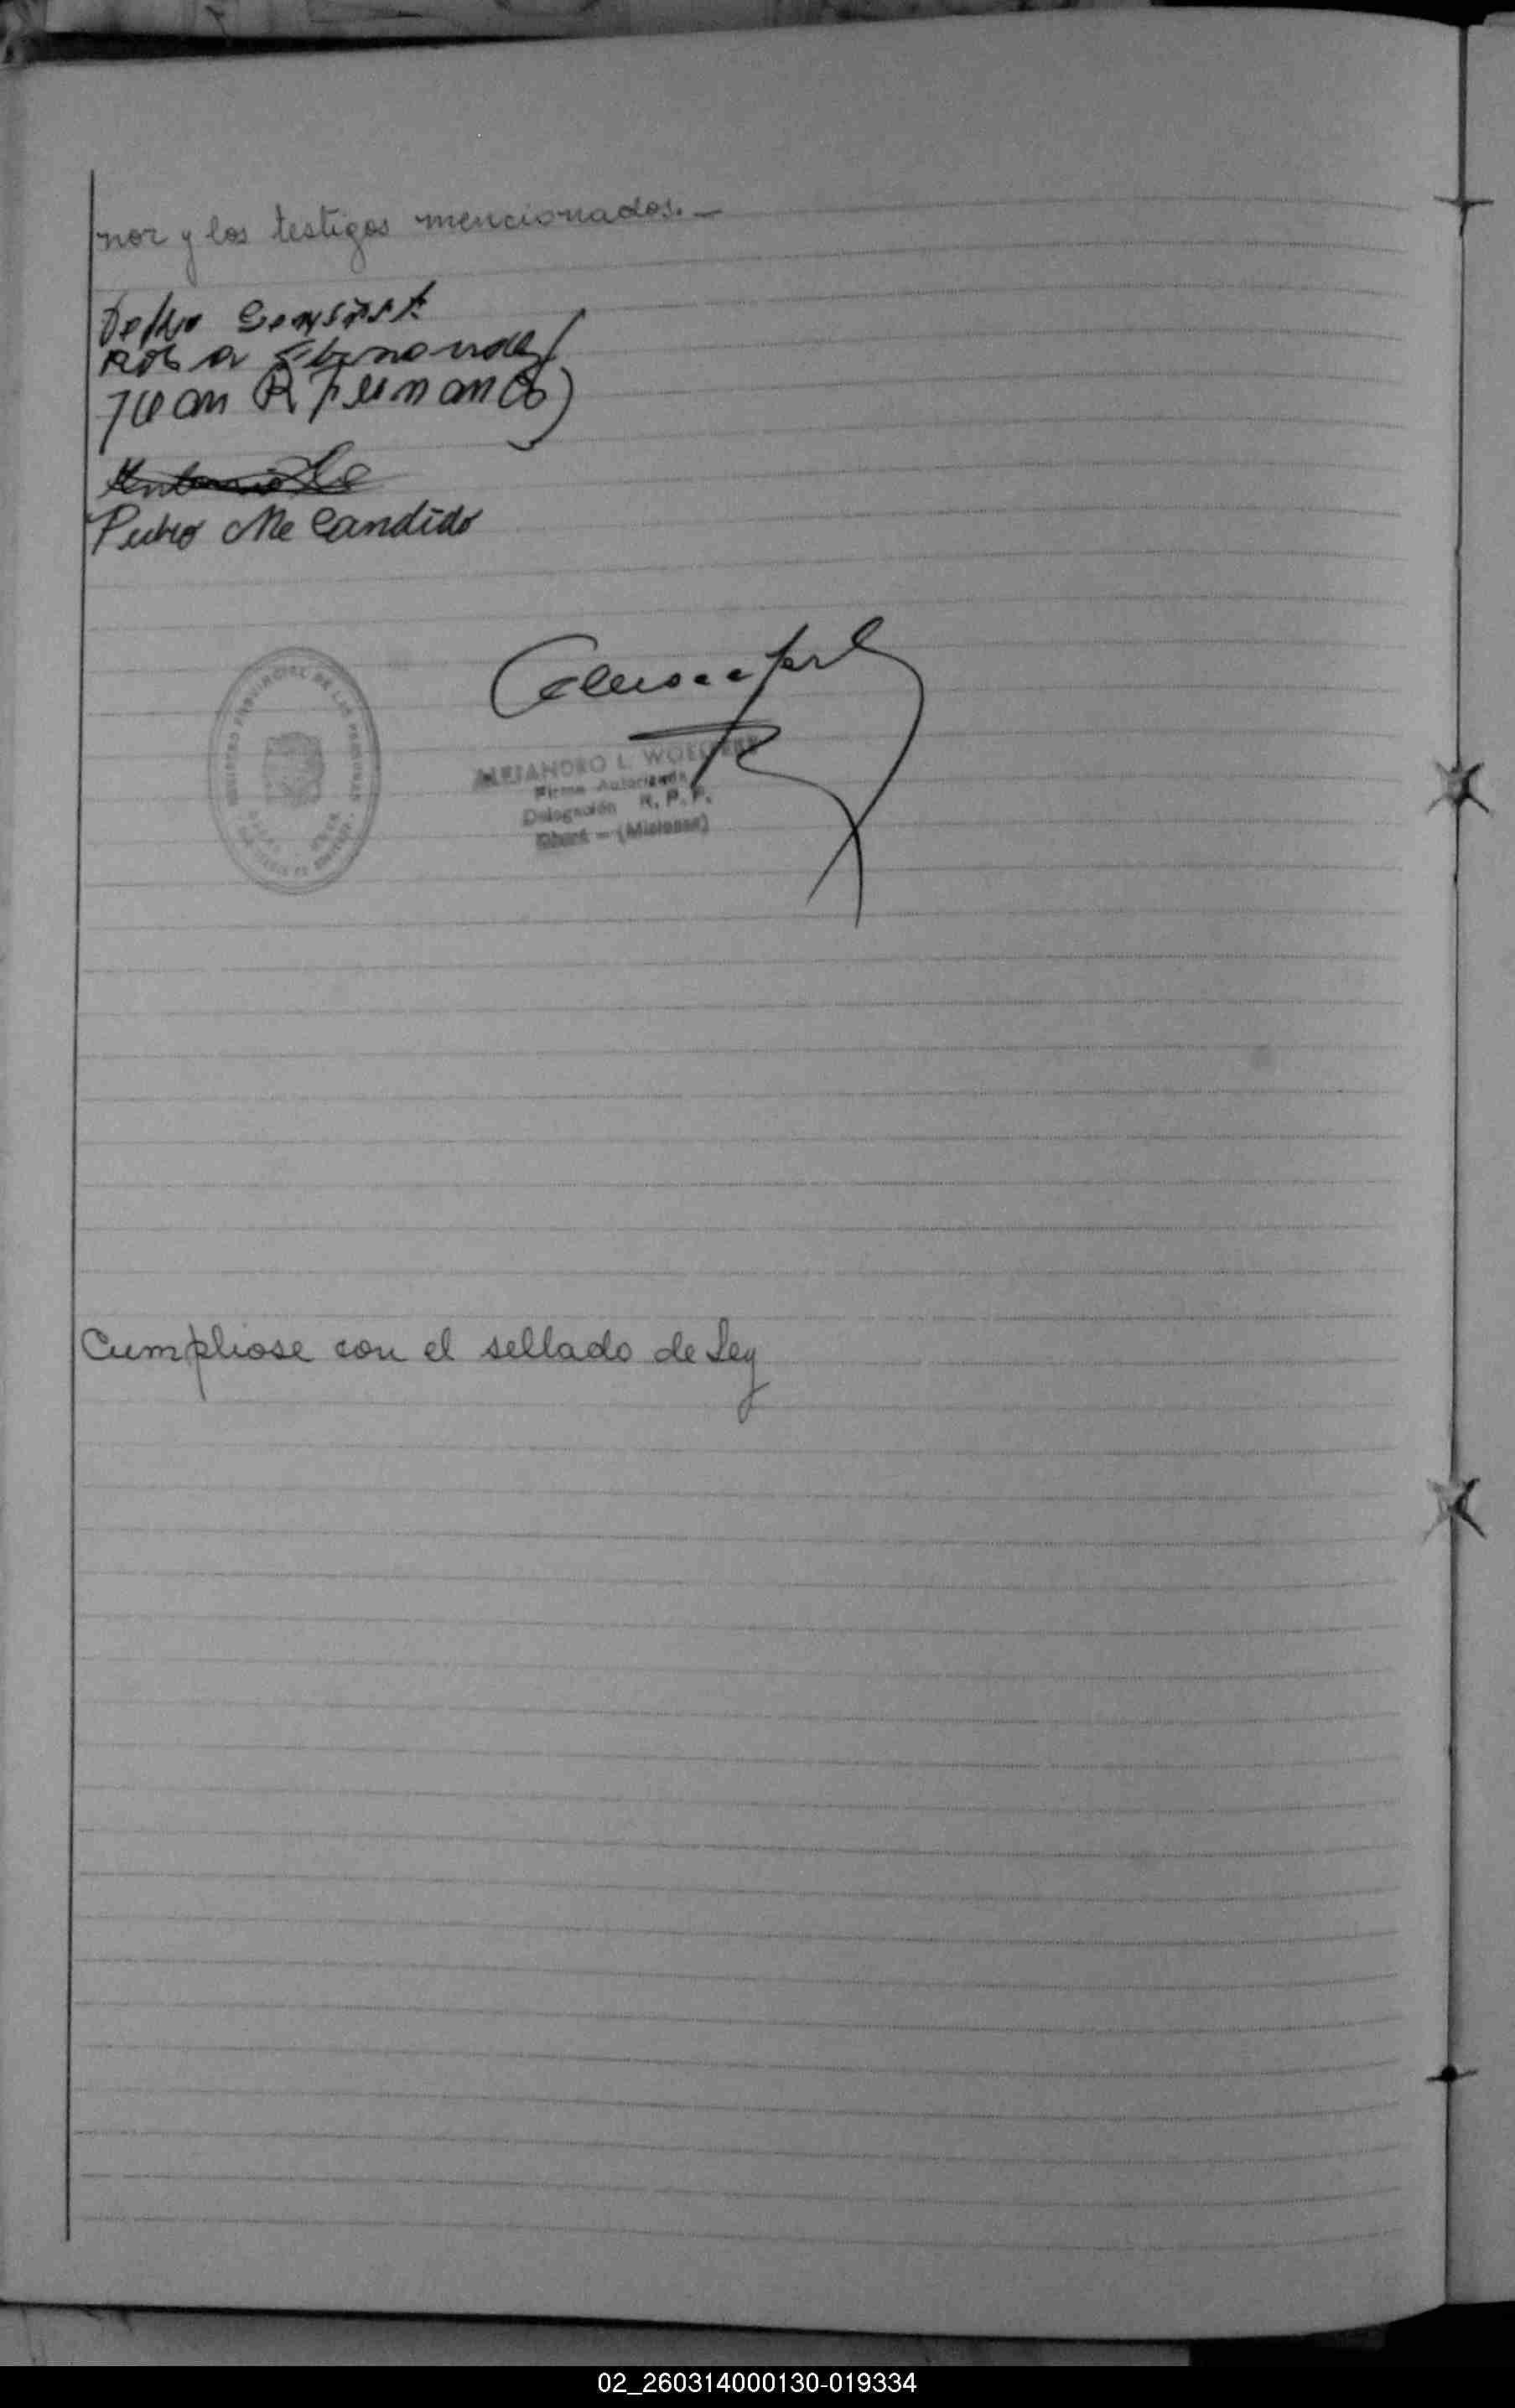 nor y los testigos mencionados.—
Pedro
Rosa Fernandez
Juan R Fernandez
Antonio
Pedro Me Candido
REGISTRO PROVINCIAL DE LAS PERSONAS
ALEJANDRO L.
Firma Autorizada
Delegación R. P. P.
Oberá - (Misiones)
Cumpliose con el sellado de Ley
02_260314000130-019334